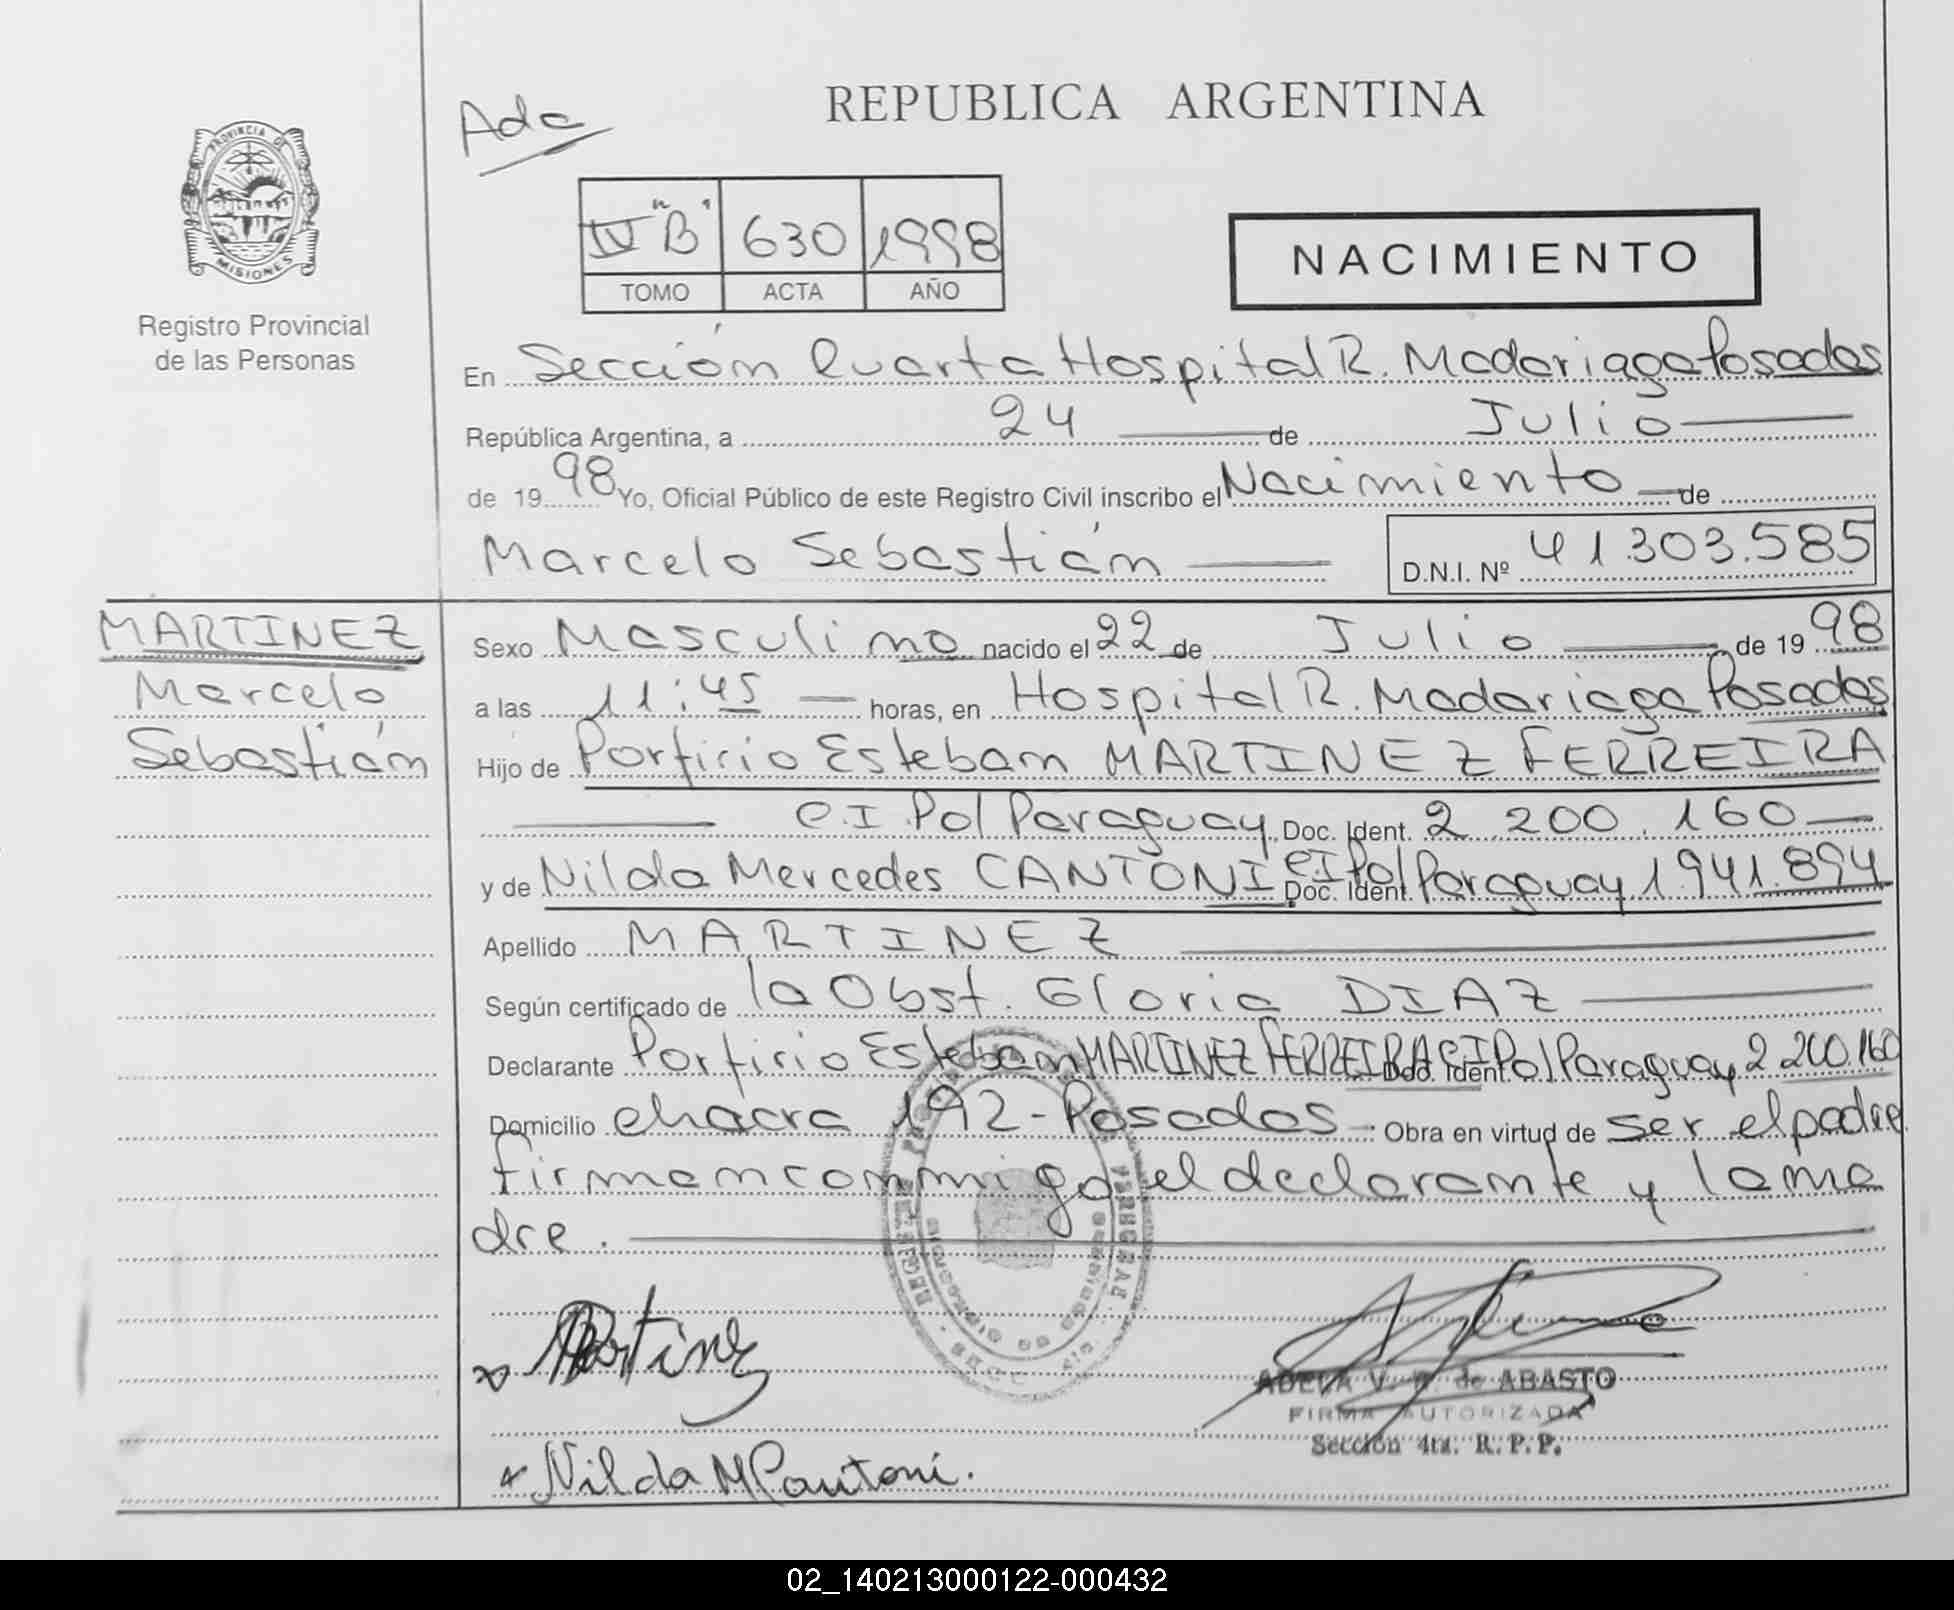 REPUBLICA ARGENTINA
Ada
PROVINCIA DE
MISIONES
Registro Provincial
de las Personas
IV "B" 630 1998
TOMO ACTA AÑO
NACIMIENTO
En Sección Cuarta Hospital R. Madariaga Posadas
República Argentina, a 24 de Julio
de 19 98 Yo, Oficial Público de este Registro Civil inscribo el Nacimiento de
Marcelo Sebastián D.N.I. Nº 41.303.585
MARTINEZ
Marcelo
Sebastián
Sexo Masculino nacido el 22 de Julio de 19 98
a las 11:45 horas, en Hospital R. Madariaga Posadas
Hijo de Porfirio Esteban MARTINEZ FERREIRA
C.I. Pol Paraguay. Doc. Ident. 2.200.160
y de Nilda Mercedes CANTONI CI Pol Doc. Ident. Paraguay 1.941.894
Apellido MARTINEZ
Según certificado de la Obst. Gloria DIAZ
Declarante Porfirio Esteban MARTINEZ FERREIRA CI Doc. Ident. Pol Paraguay 2.200.160
Domicilio chacra 192 - Posadas Obra en virtud de ser el padre
firman conmigo el declarante y la ma
dre.
Martinez
ADELA V. de ABASTO
FIRMA AUTORIZADA
Sección 4ta. R.P.P.
Nilda M Cantoni.
02_140213000122-000432